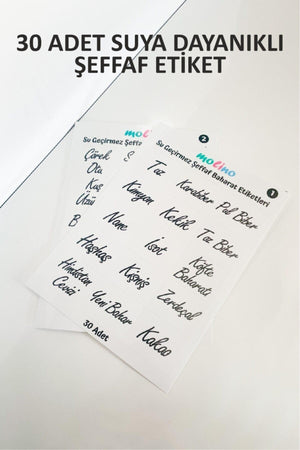 30 ADET SUYA DAYANIKLI
ŞEFFAF ETİKET
2
molino
Su Geçirmez Şeffaf Baharat Etiketleri
1
Taz
Karabiber
Pul Biber
Kimyon
Kekik
Toz Biber
Nane
İsot
Köfte
Baharatı
Haşhaş
Kişniş
Zerdeçal
Hindistan
Cevizi
Yeni Bahar
Kakao
30 Adet
molino
Su Geçirmez Şeffa
Çörek
Otu
Kuş
Üzü
B